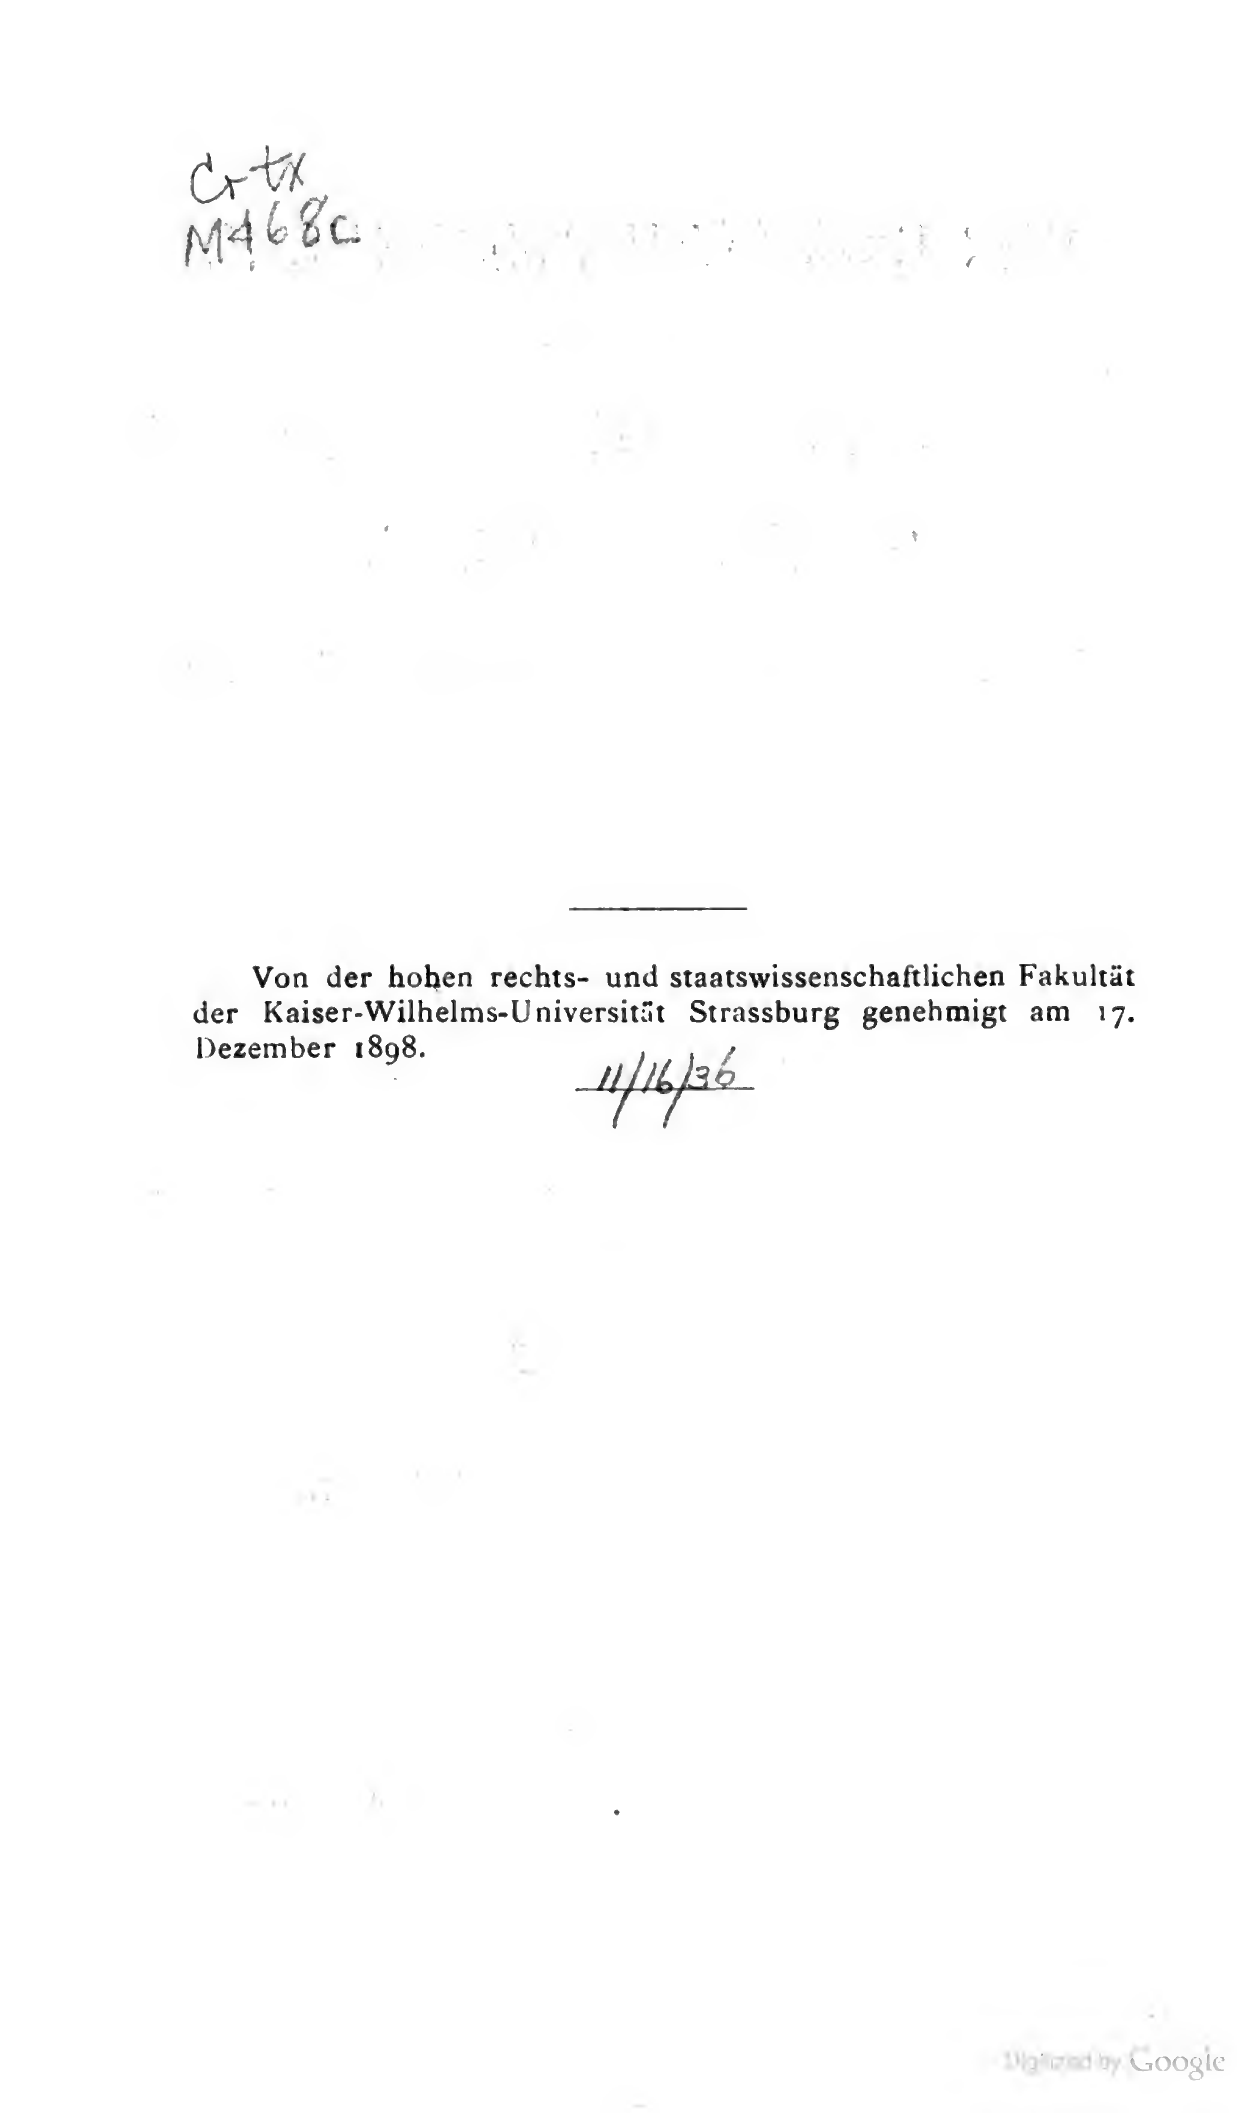 Crtx
M468c
Von der hohen rechts- und staatswissenschaftlichen Fakultät
der Kaiser-Wilhelms-Universität Strassburg genehmigt am 17.
Dezember 1898.
11/16/36
Digitized by Google